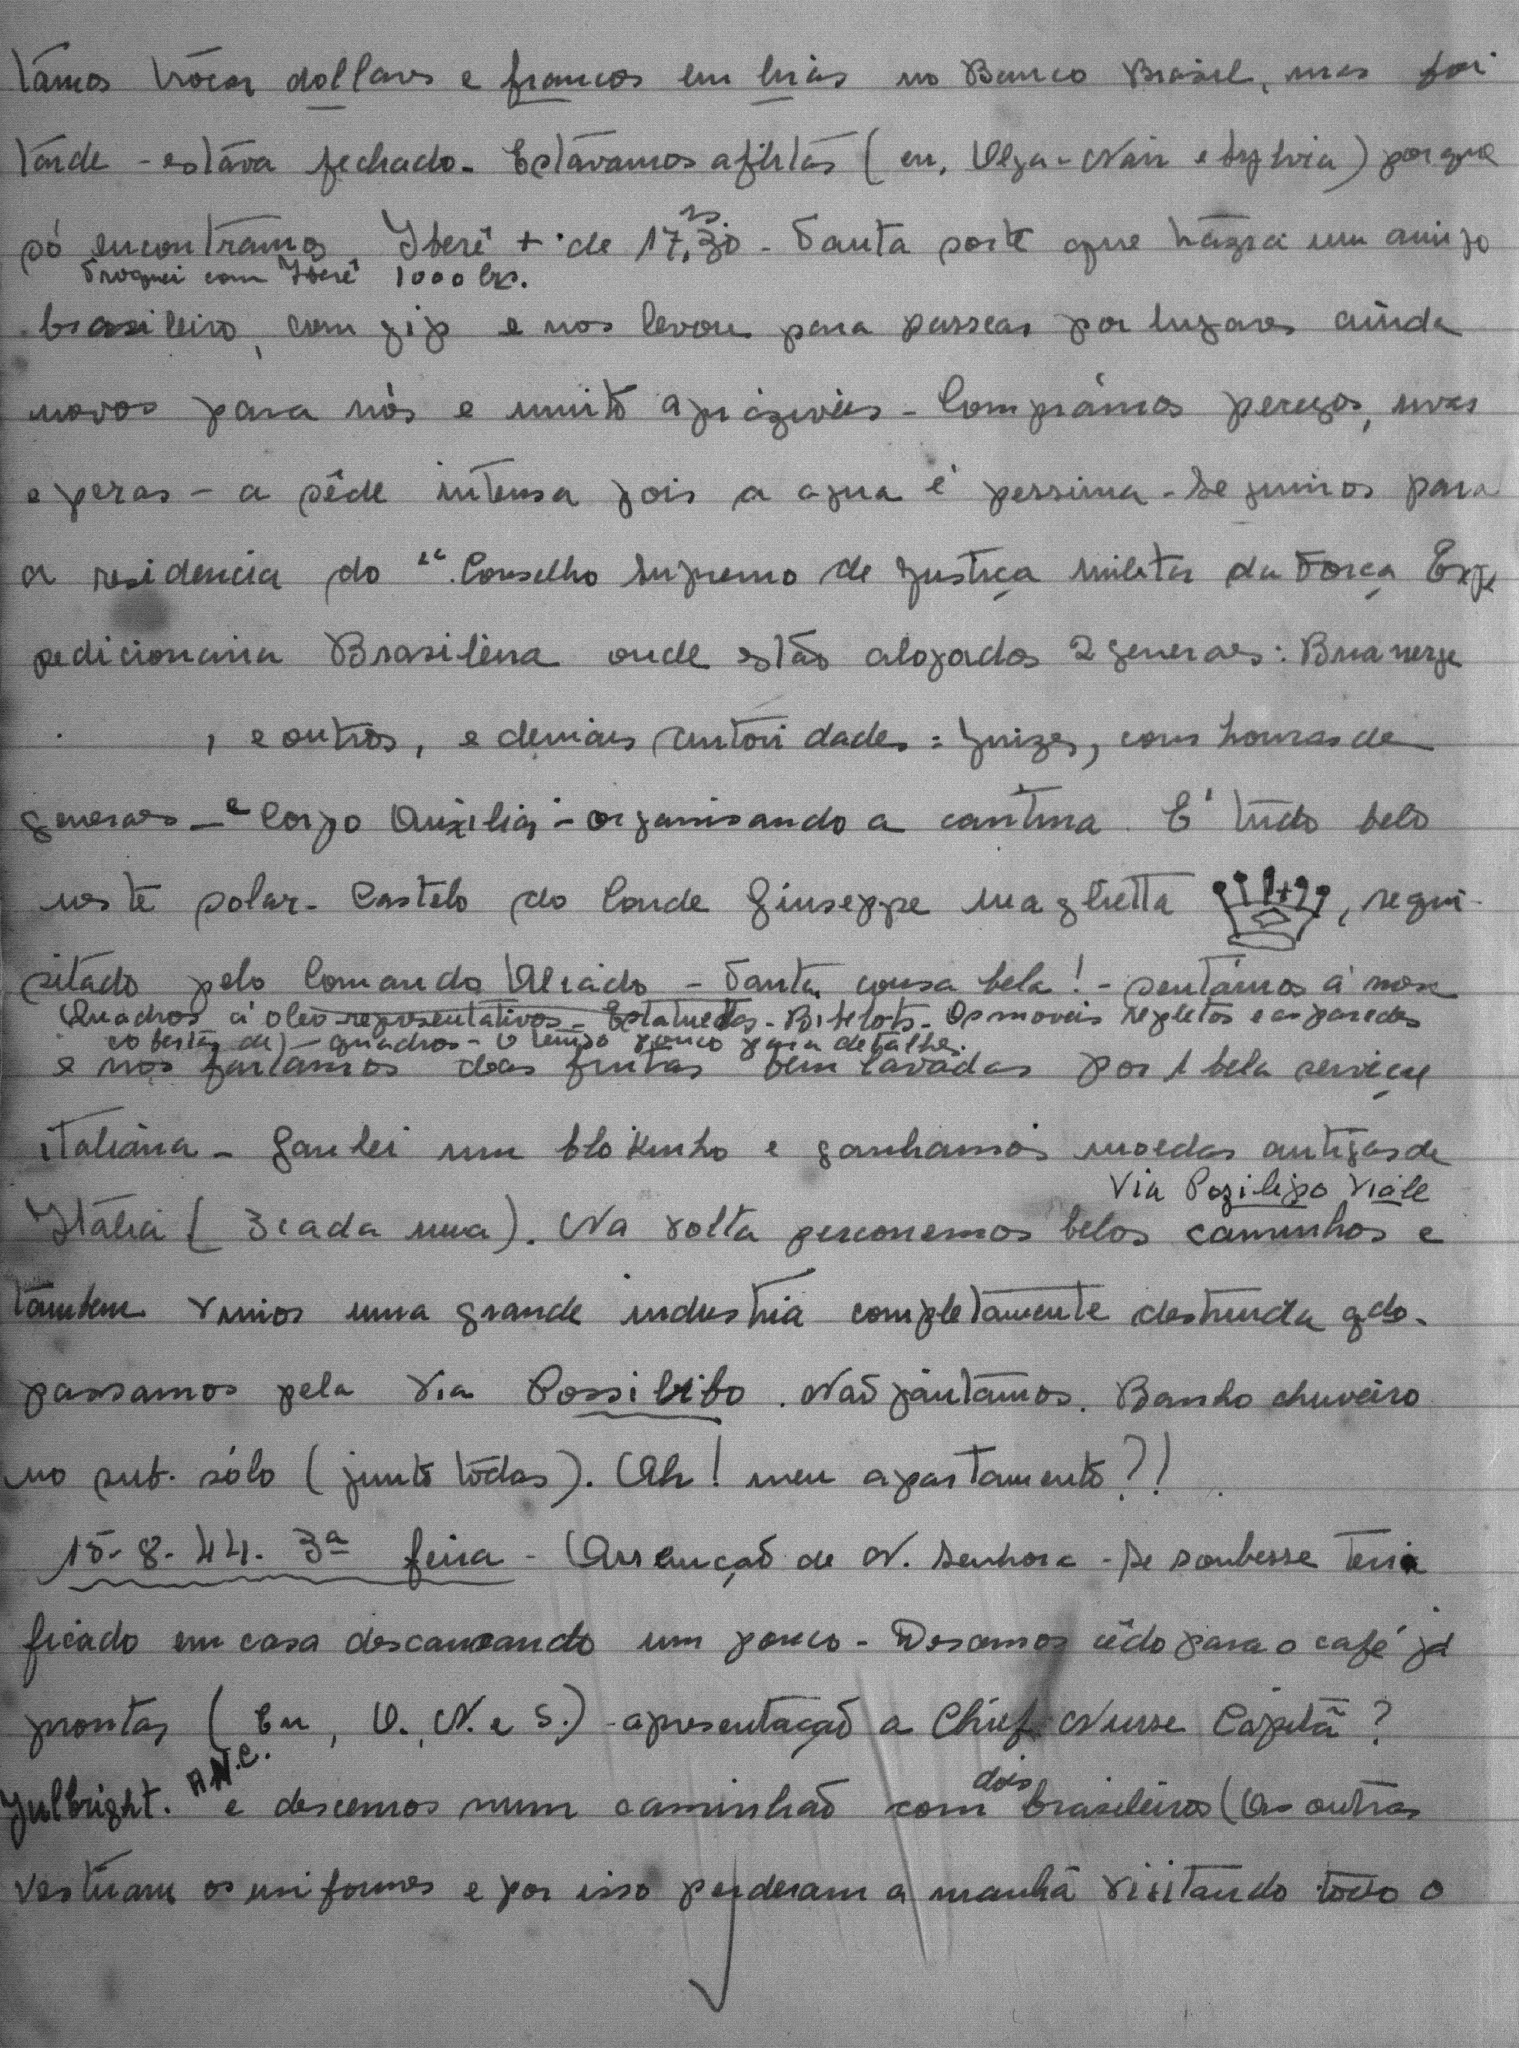 támos trócar dollares e francos em liras no Banco Brasil, mas foi
tarde - estáva fechado. Estávamos aflitas (eu, Olga - Nair e Sylvia) porque
só encontrámos Iberê + de 17,30 hs - Tanta sorte que trazia um amigo
Troquei com Iberê 1000 lrs.
brasileiro, com gip e nos levou para passear por lugares ainda
novos para nós e muito apráziveis - Comprámos pecegos, uvas
e peras - a sêde intensa pois a agua é pessima - Seguimos para
a residencia do "Conselho Supremo de Justiça Militar da Força Expe
pedicionaria Brasileira onde estão alojados 2 generaes:
, e outros, e demais autoridades = Juizes, com honras de
generaes - e Corpo Auxiliar - organisando a cantina. E' tudo belo
neste solar - Castelo do Conde Giuseppe Maglietta, requi-
sitado pelo Comando Aliado - Tanta cousa bela! - sentámos á mesa
Quadros á oleo representativos - Estatuetas - Bibelots - Os moveis repletos e as paredes
cobertas de) - quadros - O tempo pouco para detalhes.
e nos fartamos das frutas bem lavadas por 1 bela serviçal
italiana - Ganhei um blokinho e ganhamos moedas antigas da
Via Posilipo Viale
Itália (3 cada uma). Na volta percorremos belos caminhos e
tambem vimos uma grande industria completamente destruida qdo.
passamos pela Via Possilibo. Não jántámos. Banho chuveiro
no sub. sólo (junto tôdas). Ah! meu apartamento?!
15-8-44. 3ª feira - Assunção de N. Senhora - Se soubesse teria
ficado em casa descançando um pouco - Descemos cêdo para o café já
prontas (Eu, O. N. e S.) - apresentação a Chief Nurse Capitã?
Fulbright. A.N.C. e descemos num caminhão com dois brasileiros (As outras
vestiram os uniformes e por isso perderam a manhã visitando todo o